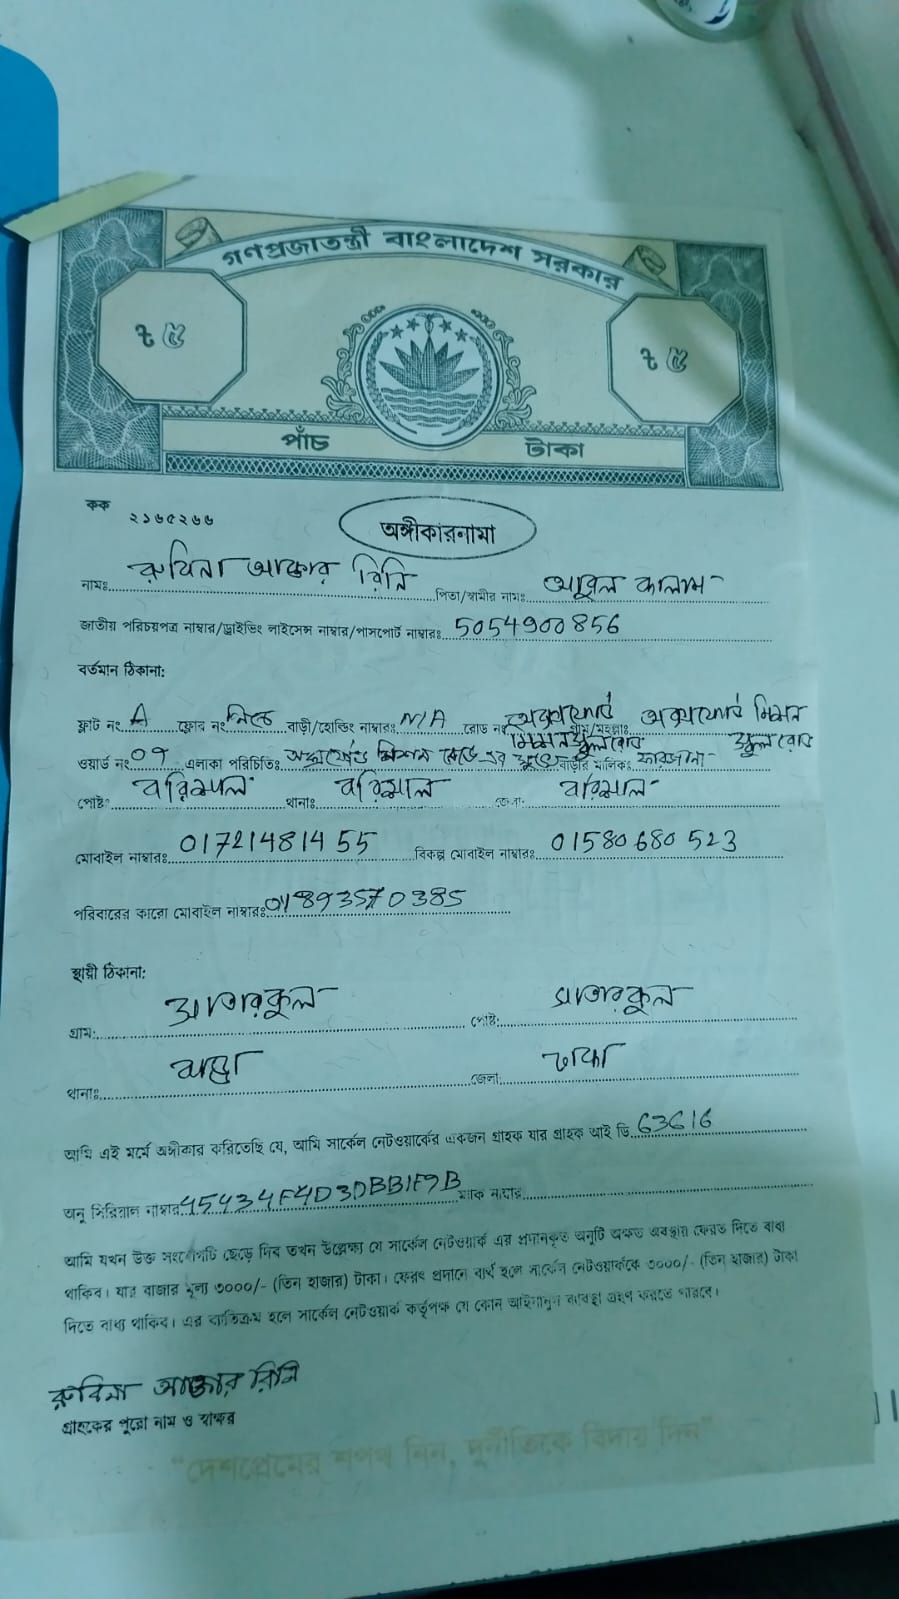 গণপ্রজাতন্ত্রী বাংলাদেশ সরকার
৳ ৫ ৳ ৫
পাঁচ টাকা
কক ২১৬৫২৬৬
অঙ্গীকারনামা
নামঃ রুবিনা আক্তার রিনি পিতা/স্বামীর নামঃ আবুল কালাম
জাতীয় পরিচয়পত্র নাম্বার/ড্রাইভিং লাইসেন্স নাম্বার/পাসপোর্ট নাম্বারঃ 5054900856
বর্তমান ঠিকানা:
ফ্লাট নং A ফ্লোর নং নিচে বাড়ী/হোল্ডিং নাম্বারঃ N/A রোড নং অক্সফোর্ড মিশন স্কুল রোড গ্রাম/মহল্লাঃ অক্সফোর্ড মিশন স্কুল রোড
ওয়ার্ড নং 09 এলাকা পরিচিতিঃ অক্সফোর্ড মিশন রোড এর বাড়ীর মালিকঃ ফারজানা
পোষ্ট: বরিশাল থানাঃ বরিশাল জেলা: বরিশাল
মোবাইল নাম্বারঃ 01721481455 বিকল্প মোবাইল নাম্বারঃ 01580680523
পরিবারের কারো মোবাইল নাম্বারঃ 01893570385
স্থায়ী ঠিকানা:
গ্রাম: সাতারকুল পোষ্ট: সাতারকুল
থানাঃ বাড্ডা জেলা: ঢাকা
আমি এই মর্মে অঙ্গীকার করিতেছি যে, আমি সার্কেল নেটওয়ার্কের একজন গ্রাহক যার গ্রাহক আই ডি 63616
অনু সিরিয়াল নাম্বার 45434F4D3DBB1F9B ম্যাক নাম্বার
আমি যখন উক্ত সংযোগটি ছেড়ে দিব তখন উল্লেক্ষ্য যে সার্কেল নেটওয়ার্ক এর প্রদানকৃত অনুটি অক্ষত অবস্থায় ফেরত দিতে বাধ্য
থাকিব। যার বাজার মূল্য ৩০০০/- (তিন হাজার) টাকা। ফেরৎ প্রদানে ব্যর্থ হলে সার্কেল নেটওয়ার্ককে ৩০০০/- (তিন হাজার) টাকা
দিতে বাধ্য থাকিব। এর ব্যতিক্রম হলে সার্কেল নেটওয়ার্ক কর্তৃপক্ষ যে কোন আইনানুগ ব্যবস্থা গ্রহণ করতে পারবে।
রুবিনা আক্তার রিনি
গ্রাহকের পুরো নাম ও স্বাক্ষর
"দেশপ্রেমের শপথ নিন, দুর্নীতিকে বিদায় দিন"